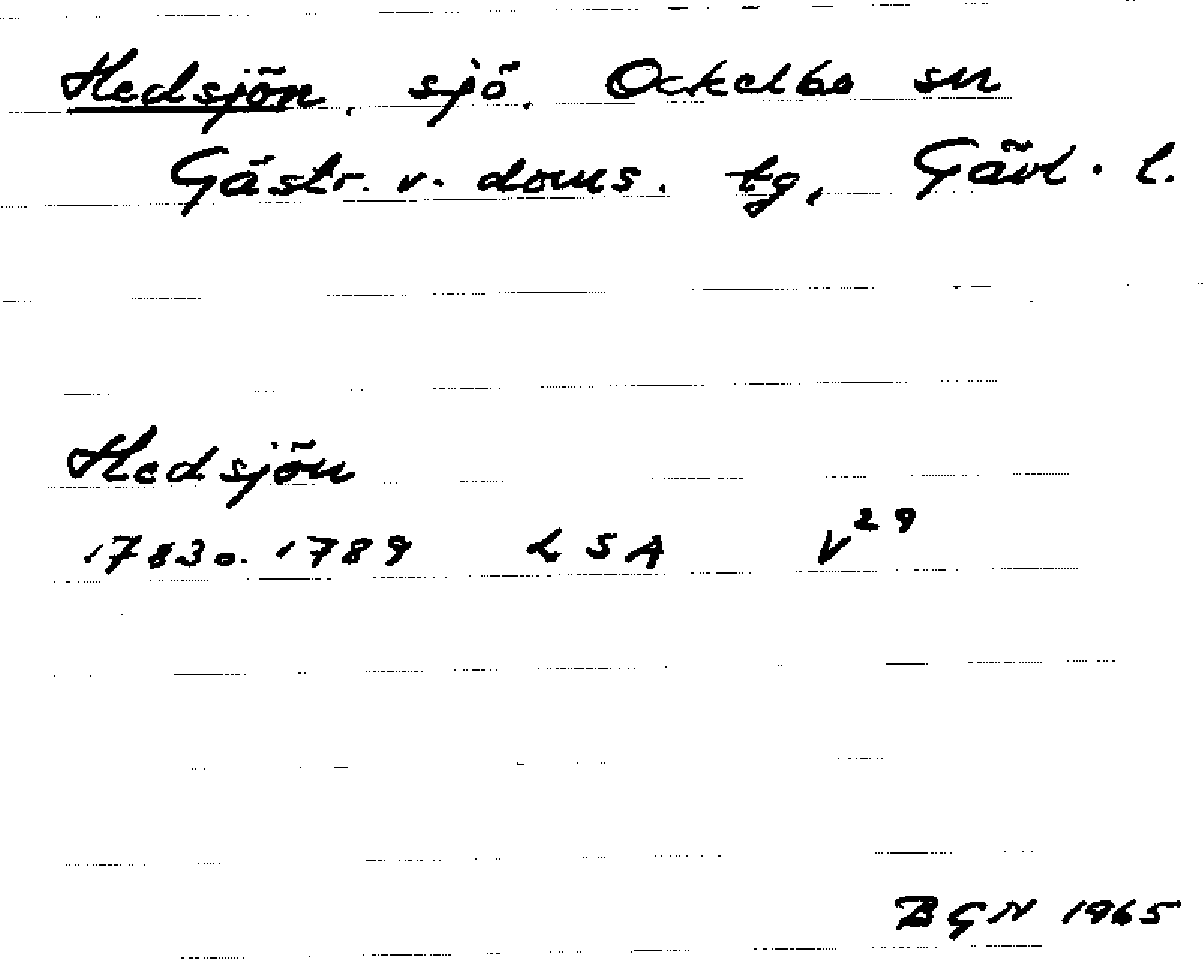 Hedsjön, sjö. Ockelbo sn
Gästr. v. doms. tg, Gävl. l.
Hedsjön
1783 o. 1789 LSA V²⁹
BGN 1965